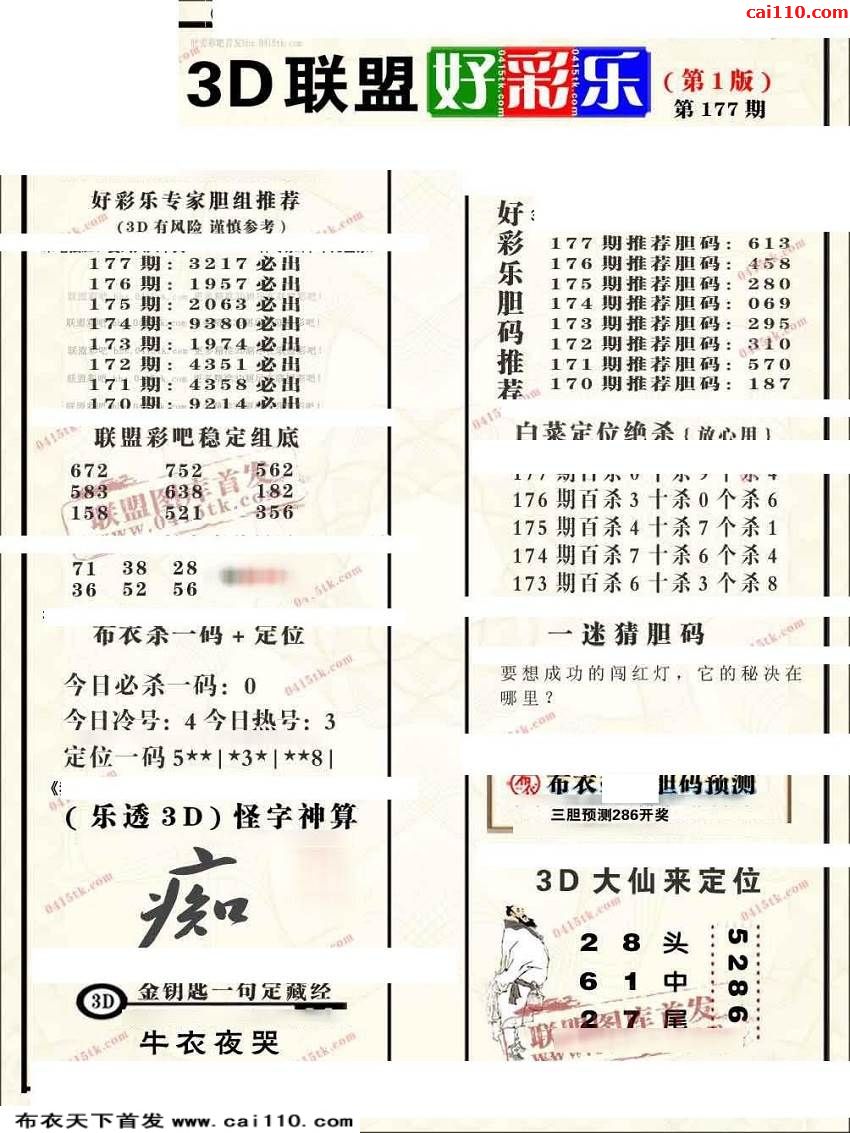 cai110.com
3D联盟好彩乐(第1版)
第177期
好彩乐专家胆组推荐
(3D有风险 谨慎参考)
177期:3217必出
176期:1957必出
175期:2063必出
174期:9380必出
173期:1974必出
172期:4351必出
171期:4358必出
170期:9214必出
联盟彩吧稳定组底
672 752 562
583 638 182
158 521 356
71 38 28
36 52 56
布衣杀一码+定位
今日必杀一码:0
今日冷号:4 今日热号:3
定位一码5**|*3*|**8|
(乐透3D)怪字神算
痴
3D
金钥匙一句定藏经
牛衣夜哭
好彩乐胆码推荐
177期推荐胆码:613
176期推荐胆码:458
175期推荐胆码:280
174期推荐胆码:069
173期推荐胆码:295
172期推荐胆码:310
171期推荐胆码:570
170期推荐胆码:187
白菜定位绝杀{放心用}
176期百杀3十杀0个杀6
175期百杀4十杀7个杀1
174期百杀7十杀6个杀4
173期百杀6十杀3个杀8
一迷猜胆码
要想成功的闯红灯，它的秘决在
哪里？
布衣
胆码预测
三胆预测286开奖
3D大仙来定位
28头
61中
27尾
5286
联盟图库首发
www.0415tk.com
布衣天下首发 www.cai110.com